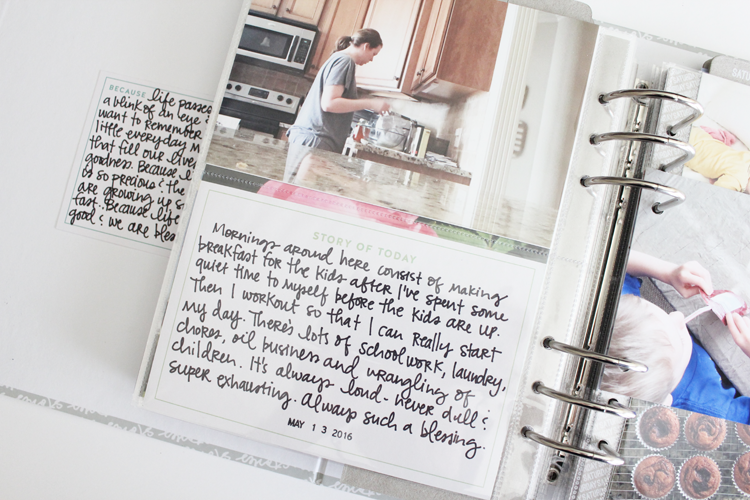 BECAUSE life passes
a blink of an eye &
want to remember
little everyday
that fill our lives
goodness. Because l
is so precious & the
are growing up s
fast. Because life
good & we are bles
STORY OF TODAY
Mornings around here consist of making
breakfast for the kids after I've spent some
quiet time to myself before the kids are up.
Then I workout so that I can really start
my day. There's lots of schoolwork, laundry,
chores, oil business and wrangling of
children. It's always loud - never dull &
super exhausting. Always such a blessing.
MAY 1 3 2016